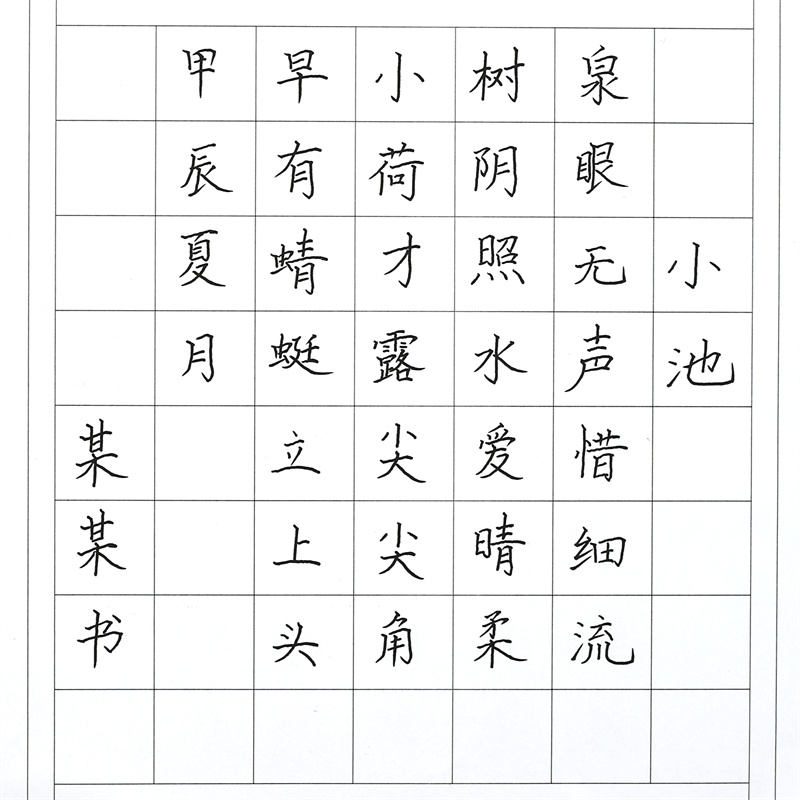 小池
泉眼无声惜细流
树阴照水爱晴柔
小荷才露尖尖角
早有蜻蜓立上头
甲辰夏月
某某书